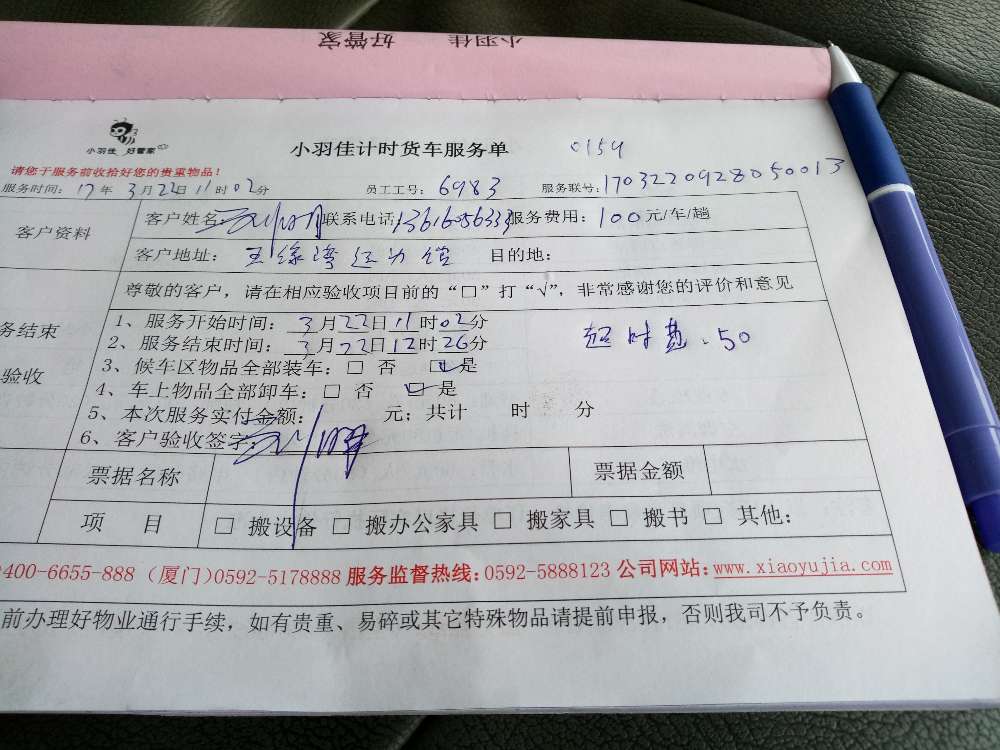 小羽佳 好管家
小羽佳 好管家
小羽佳计时货车服务单 0159
请您于服务前收拾好您的贵重物品!
服务时间: 17年3月22日11时02分 员工工号: 6983 服务联号: 1703220928050013
客户资料
客户姓名: 联系电话: 服务费用: 100元/车/趟
客户地址: 目的地:
尊敬的客户, 请在相应验收项目前的“□”打“√”, 非常感谢您的评价和意见
务结束
验收
1、服务开始时间: 3月22日11时02分
2、服务结束时间: 3月22日12时26分
超时费.50
3、候车区物品全部装车: □ 否 □ 是
4、车上物品全部卸车: □ 否 □ 是
5、本次服务实付金额: 元; 共计 时 分
6、客户验收签字:
票据名称 票据金额
项 目 □ 搬设备 □ 搬办公家具 □ 搬家具 □ 搬书 □ 其他:
400-6655-888 (厦门)0592-5178888 服务监督热线:0592-5888123 公司网站:www.xiaoyujia.com
前办理好物业通行手续, 如有贵重、易碎或其它特殊物品请提前申报, 否则我司不予负责。